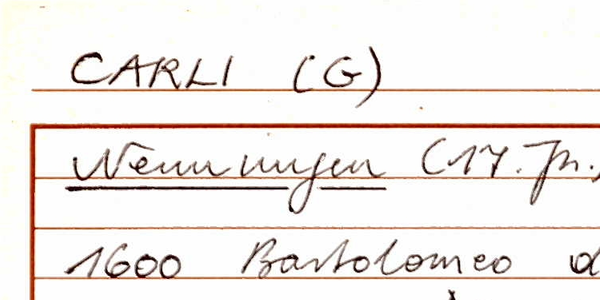 CARLI (G)
Nenningen (17. Jh.)
1600 Bartolomeo d